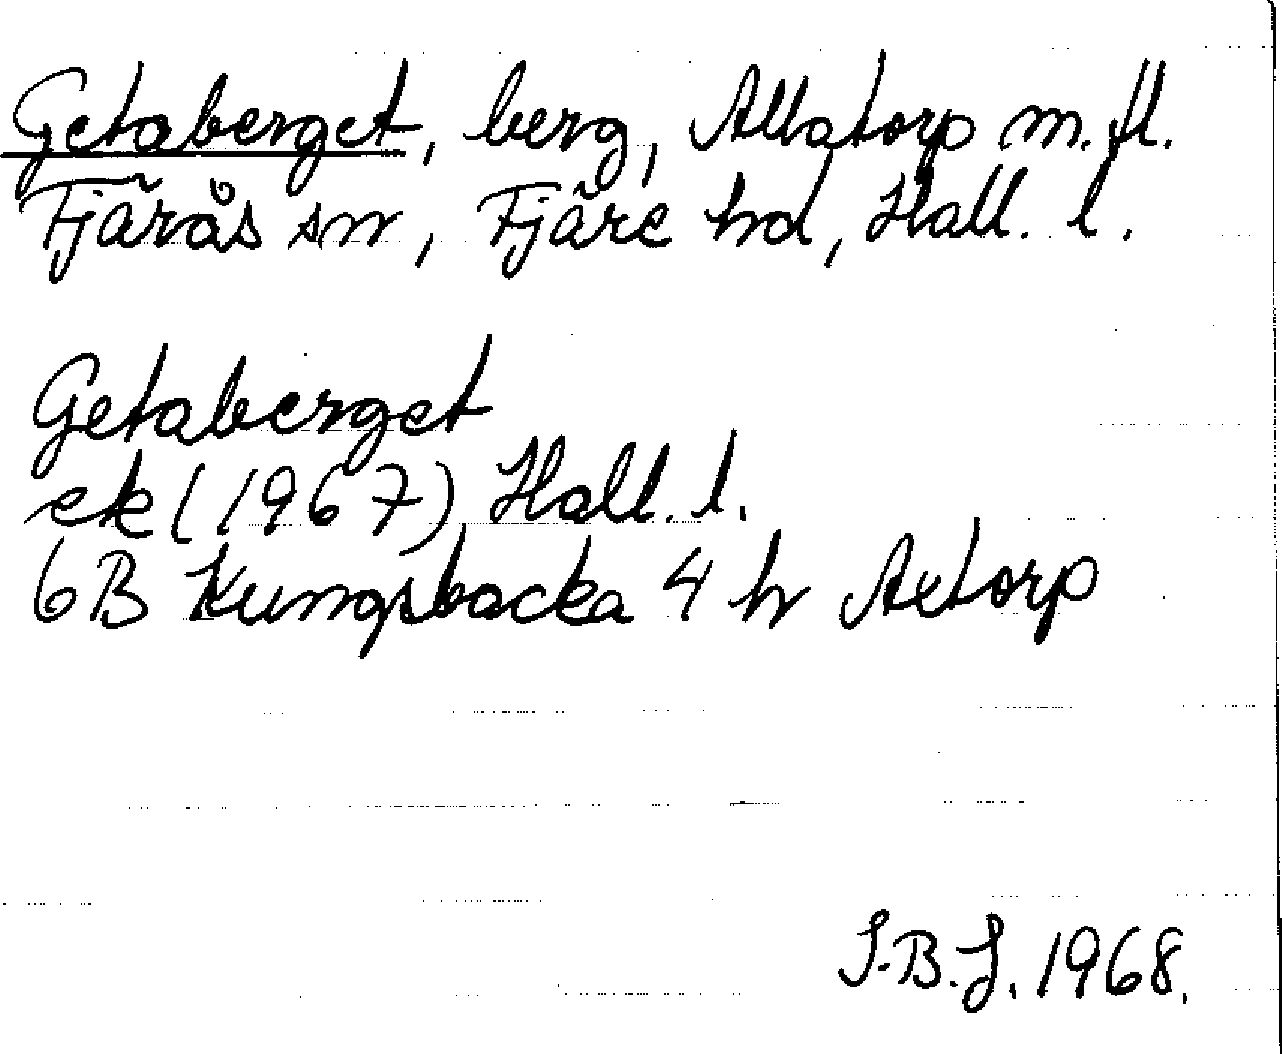 Getaberget, berg, Allatorp m. fl.
Fjärås sn, Fjäre hd, Hall. l.
Getaberget
ek (1967) Hall. l.
6B Kungsbacka 4 h Axtorp
I.B.J. 1968.